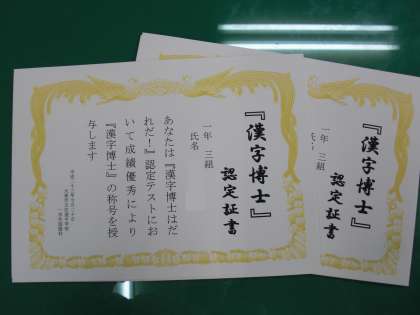 『漢字博士』
認定証書
一年 三組
氏名
あなたは『漢字博士はだ
れだ！』認定テストにお
いて成績優秀により
『漢字博士』の称号を授
与します
『漢字博士』
認定証書
一年 三組